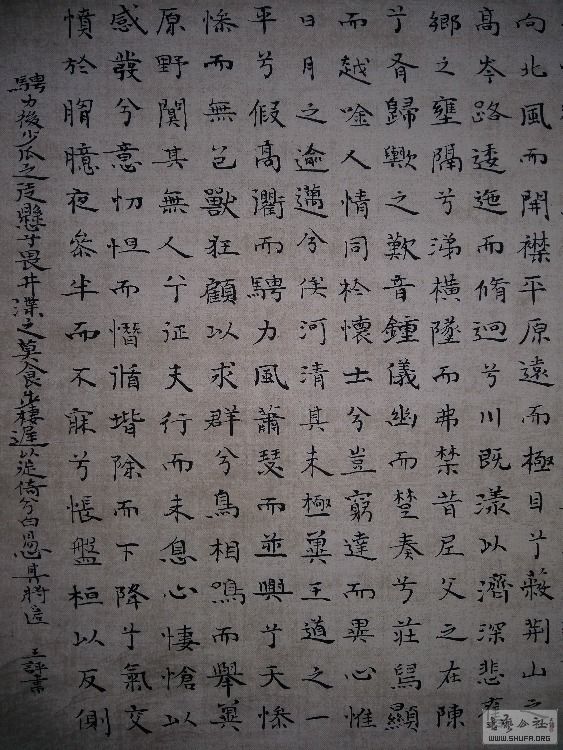 向北風而開襟平原遠而極目兮蔽荊山之
高岑路逶迤而脩迥兮川既漾以濟深悲舊
鄉之壅隔兮涕橫墜而弗禁昔尼父之在陳
兮有歸歟之歎音鍾儀幽而楚奏兮莊舄顯
而越唫人情同於懷土兮豈窮達而異心惟
日月之逾邁兮俟河清其未極冀王道之一
平兮假高衢而騁力風蕭瑟而並興兮天慘
慘而無色獸狂顧以求群兮鳥相鳴而舉翼
原野闃其無人兮征夫行而未息心悽愴以
感發兮意忉怛而憯循堦除而下降兮氣交
憤於胷臆夜參半而不寐兮悵盤桓以反側
騁力後少瓜之徒懸兮畏井渫之莫食步棲遲以徙倚兮白日忽其將匿 王評書
書藝公社
WWW.SHUFA.ORG